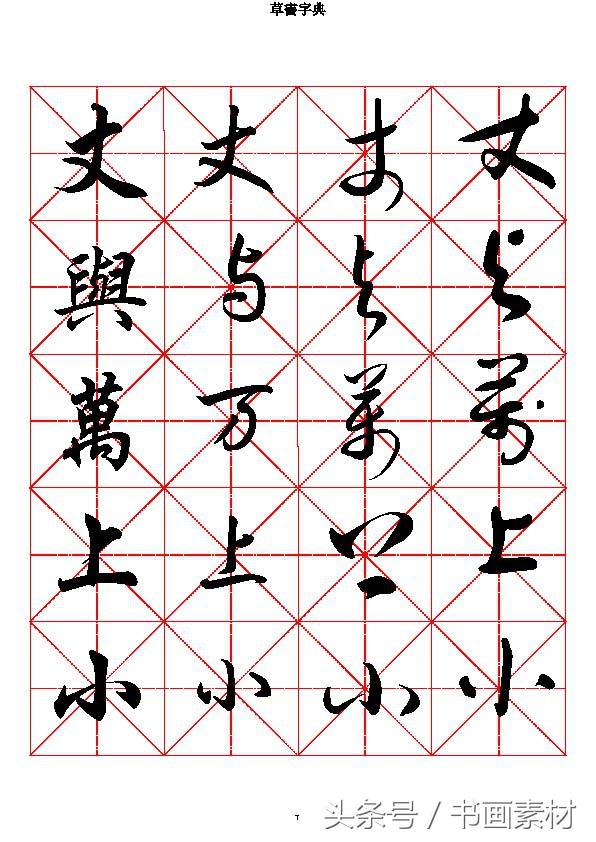 草書字典
丈 丈 丈 丈
與 与 与 与
萬 万 萬 萬
上 上 上 上
小 小 小 小
头条号 / 书画素材